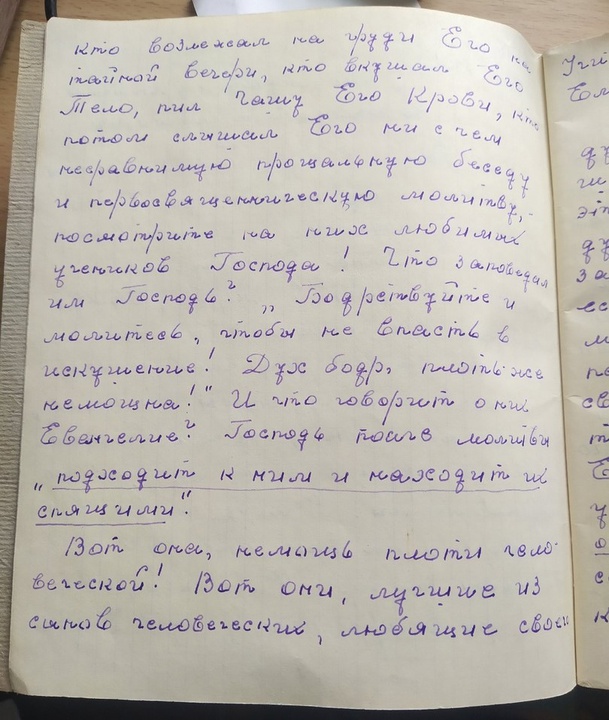 кто возлежал на груди Его на
тайной вечери, кто вкушал Его
Тело, пил Чашу Его Крови, кто
потом слышал Его ни с чем
несравнимую прощальную беседу
и первосвященническую молитву,
посмотрите на них любимых
учеников Господа! Что заповедал
им Господь? „Бодрствуйте и
молитесь, чтобы не впасть в
искушение! Дух бодр, плоть же
немощна!" И что говорит о них
Евангелие? Господь после молитвы
„подходит к ним и находит их
спящими".
Вот она, немощь плоти чело-
веческой! Вот они, лучшие из
сынов человеческих, любящие своего